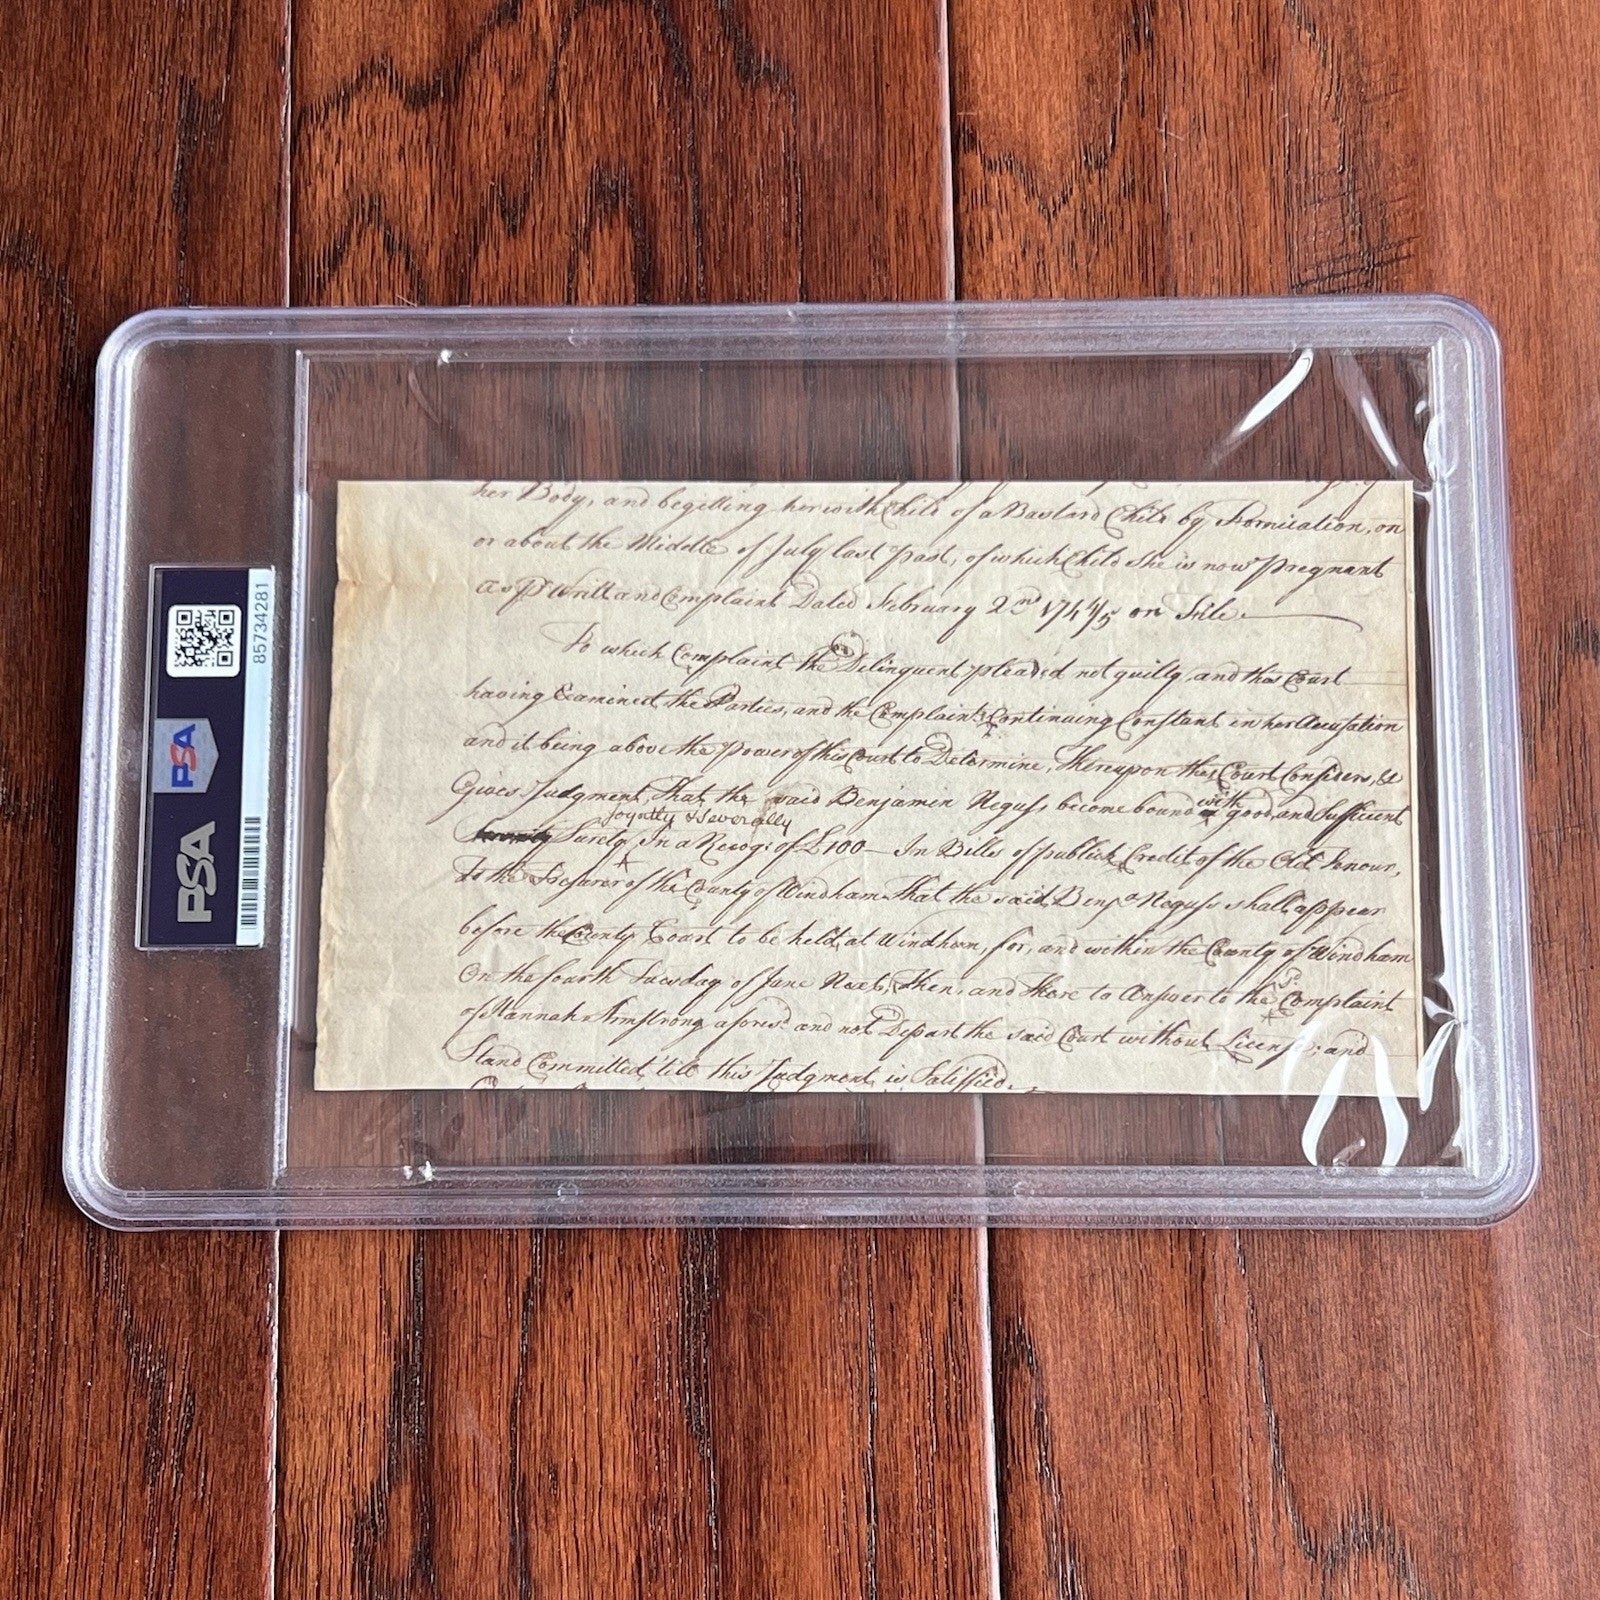 her Body, and begitting her with Child of a Bastard Child by Fornication, on
or about the Middle of July last past, of which Child she is now Pregnant
as pr Writt and Complaint Dated February 2nd 1744/5 on File.
To which Complaint the Delinquent pleaded not guilty, and this Court
having Examined the Parties, and the Complaint Continuing Constant in her Accusation
and it being above the power of this Court to Determine, Thereupon this Court Considers, &
Gives Judgment, That the said Benjamin Neguss become bound with good and Sufficient
joyntly & Severally
Surety In a Recog: of £100— In Bills of publick Credit of the Old Tenour,
to the Treasurer of the County of Windham That the said Benja Neguss shall appear
before the County Court to be held at Windham, for, and within the County of Windham
On the fourth Tuesday of June Next, Then, and There to Answer to the sd Complaint
of Hannah Armstrong aforesd and not Depart the said Court without License; and
Stand Committed till this Judgment is Satisfied.
PSA
PSA
85734281